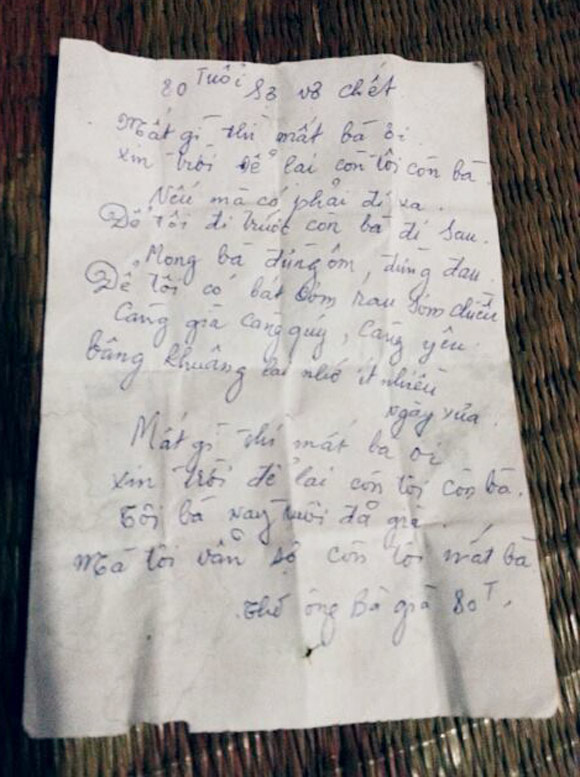 80 Tuổi Sợ vợ chết
Mất gì thì mất bà ơi
xin trời để lại còn tôi còn bà
Nếu mà có phải đi xa.
Để tôi đi trước còn bà đi sau.
Mong bà đừng ốm, đừng đau
Để tôi có bát cơm rau sớm chiều
Càng già càng quy, càng yêu
bâng khuâng lại nhớ ít nhiều
ngày xửa.
Mất gì thì mất bà ơi
xin trời để lại còn tôi còn bà.
Tôi bà nay tuổi đã già.
Mà tôi vẫn sợ còn tôi mất bà
thơ ông Bà già 80T.